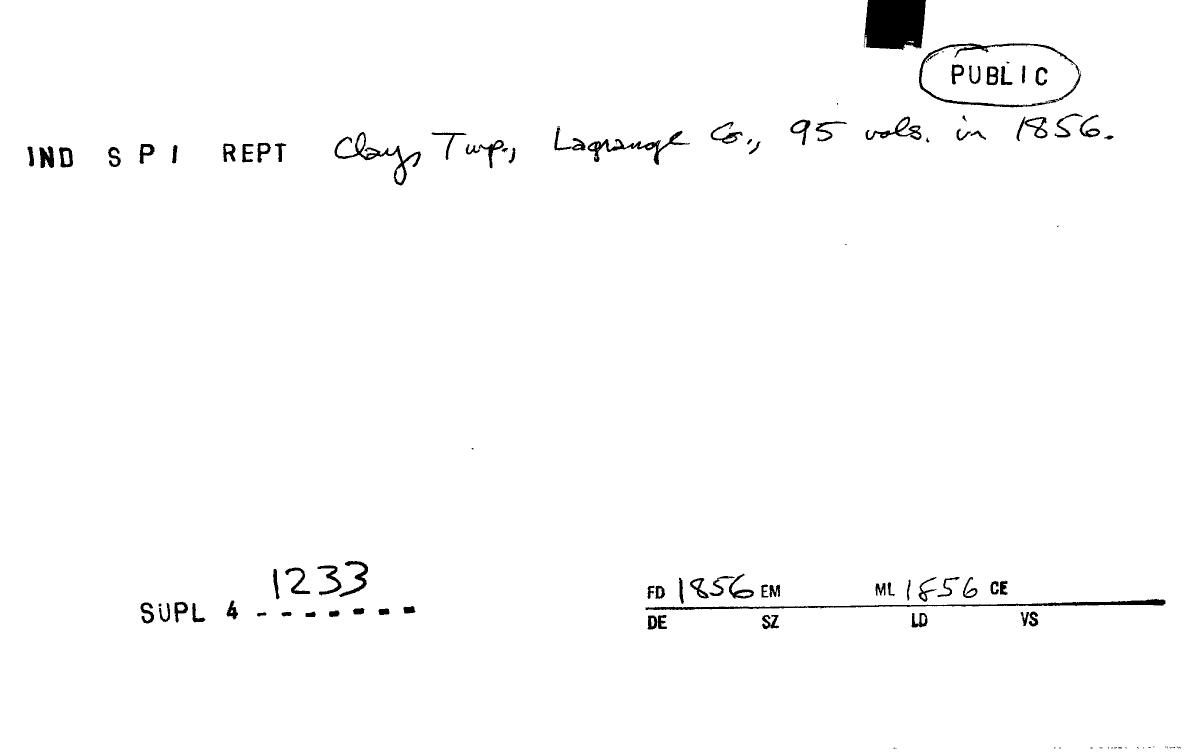 PUBLIC
IND S P I REPT Clay, Twp., Lagrange Co., 95 vols. in 1856.
1233
SUPL 4 -------
FD 1856 EM ML 1856 CE
DE SZ LD VS